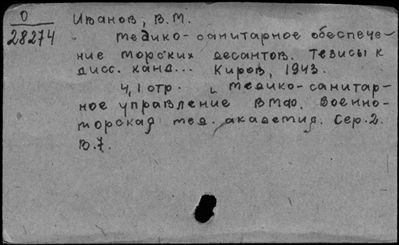 О
28274
Иванов, В.М.
Медико-санитарное обеспече-
ние морских десантов. Тезисы к
дисс. канд... Киров, 1943.
4,1 стр. Медико-санитар-
ное управление ВМФ. Военно-
морская мед. академия. Сер. 2.
В.7.